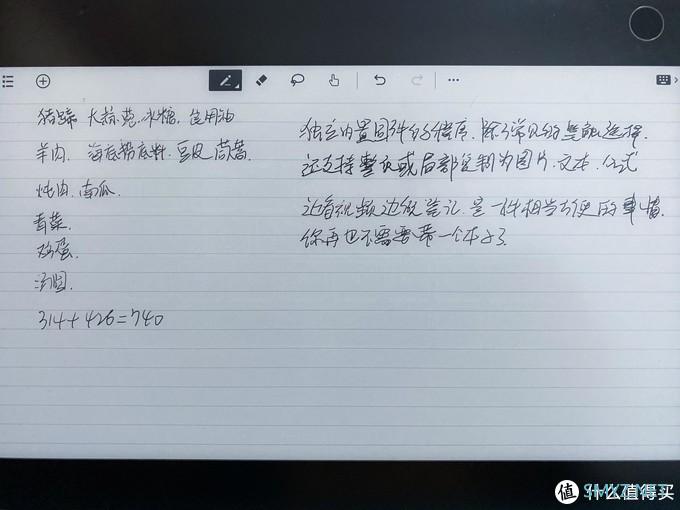 猪蹄 大蒜.葱.冰糖.食用油
羊肉. 海底捞底料.豆皮 茼蒿
炖肉.南瓜.
青菜.
鸡蛋.
汤圆.
314+426=740
独立内置固件的程序.除了常见的智能选择.
还支持整页或局部复制为图片.文本.公式
边看视频边做笔记.是一件相当方便的事情.
你再也不需要带一个本子了.
值 什么值得买